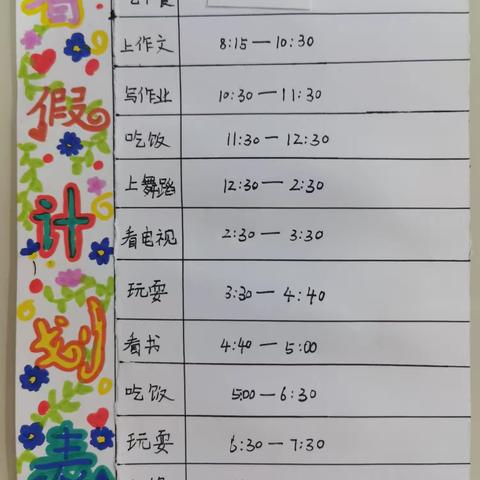 暑假计划表
上作文 8:15—10:30
写作业 10:30—11:30
吃饭 11:30—12:30
上舞蹈 12:30—2:30
看电视 2:30—3:30
玩耍 3:30—4:40
看书 4:40—5:00
吃饭 5:00—6:30
玩耍 6:30—7:30